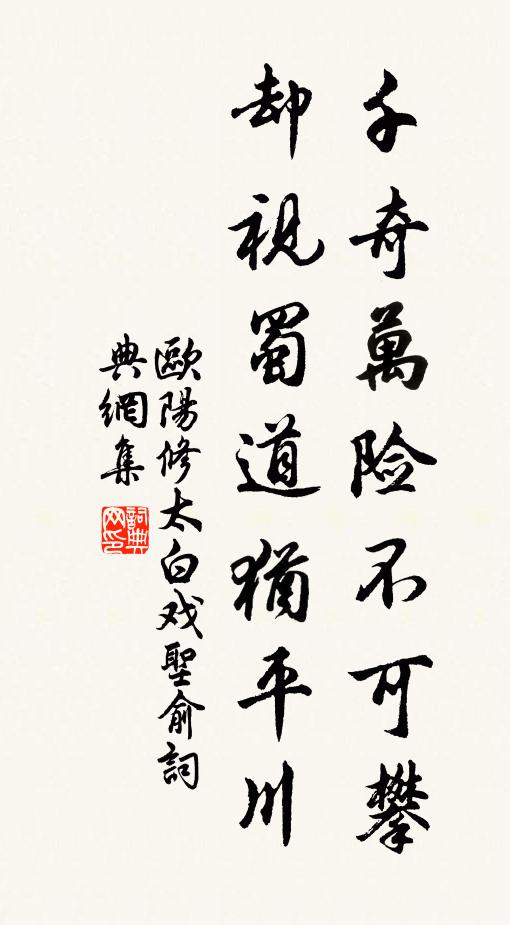 千奇萬险不可攀
却視蜀道猶平川
歐陽修太白戏聖俞詞
典網集
詞典网印